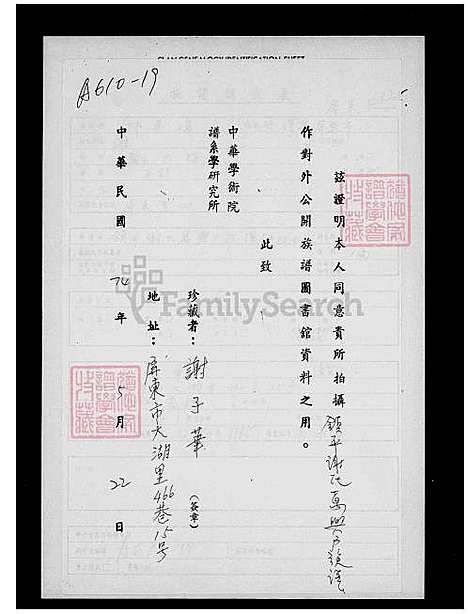 A610-19
茲證明本人同意貴所拍攝鎮平謝氏
作對外公開族譜圖書舘資料之用。
此致
中華學術院
譜系學研究所
珍藏者：謝子華(簽章)
地址：屏東市大湖里466巷15号
中華民國74年5月22日
FamilySearch